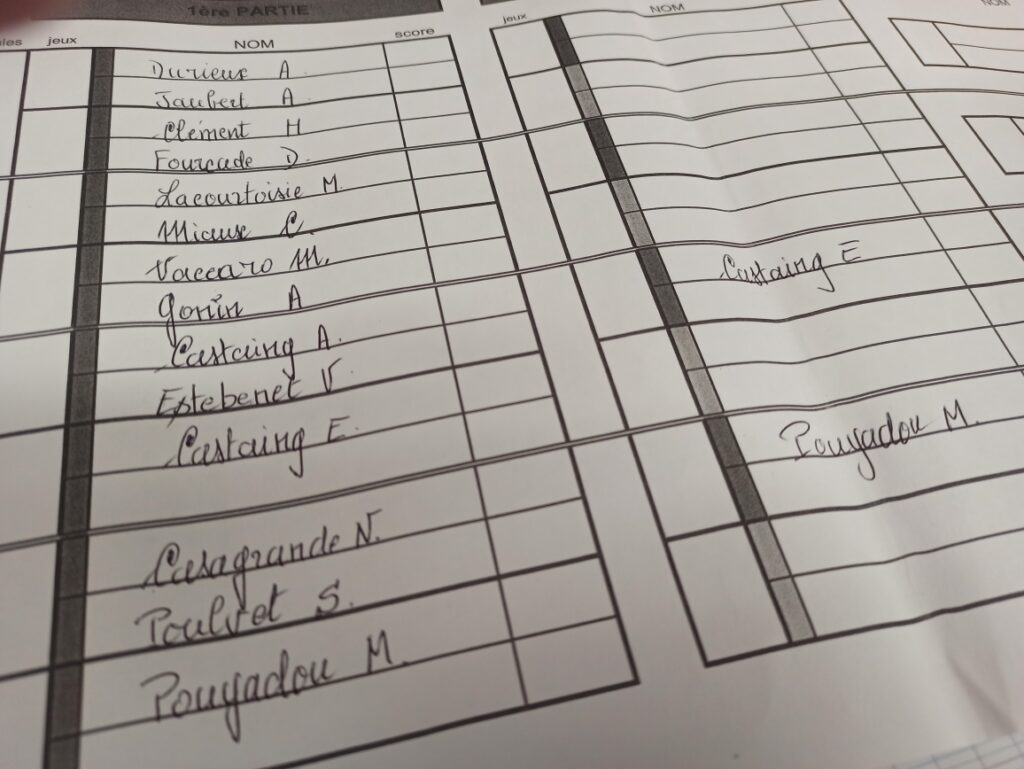 1ère PARTIE
jeux
NOM
score
Durieux A
Jaubert A
Clément H
Fourcade D.
Lacourtoisie M.
Miaux C.
Vaccaro M.
Gonin A
Castaing A.
Estebenet V.
Castaing E.
Casagrande N.
Poulvet S.
Pouyadou M.
jeux
NOM
Castaing E
Pouyadou M.
NOM